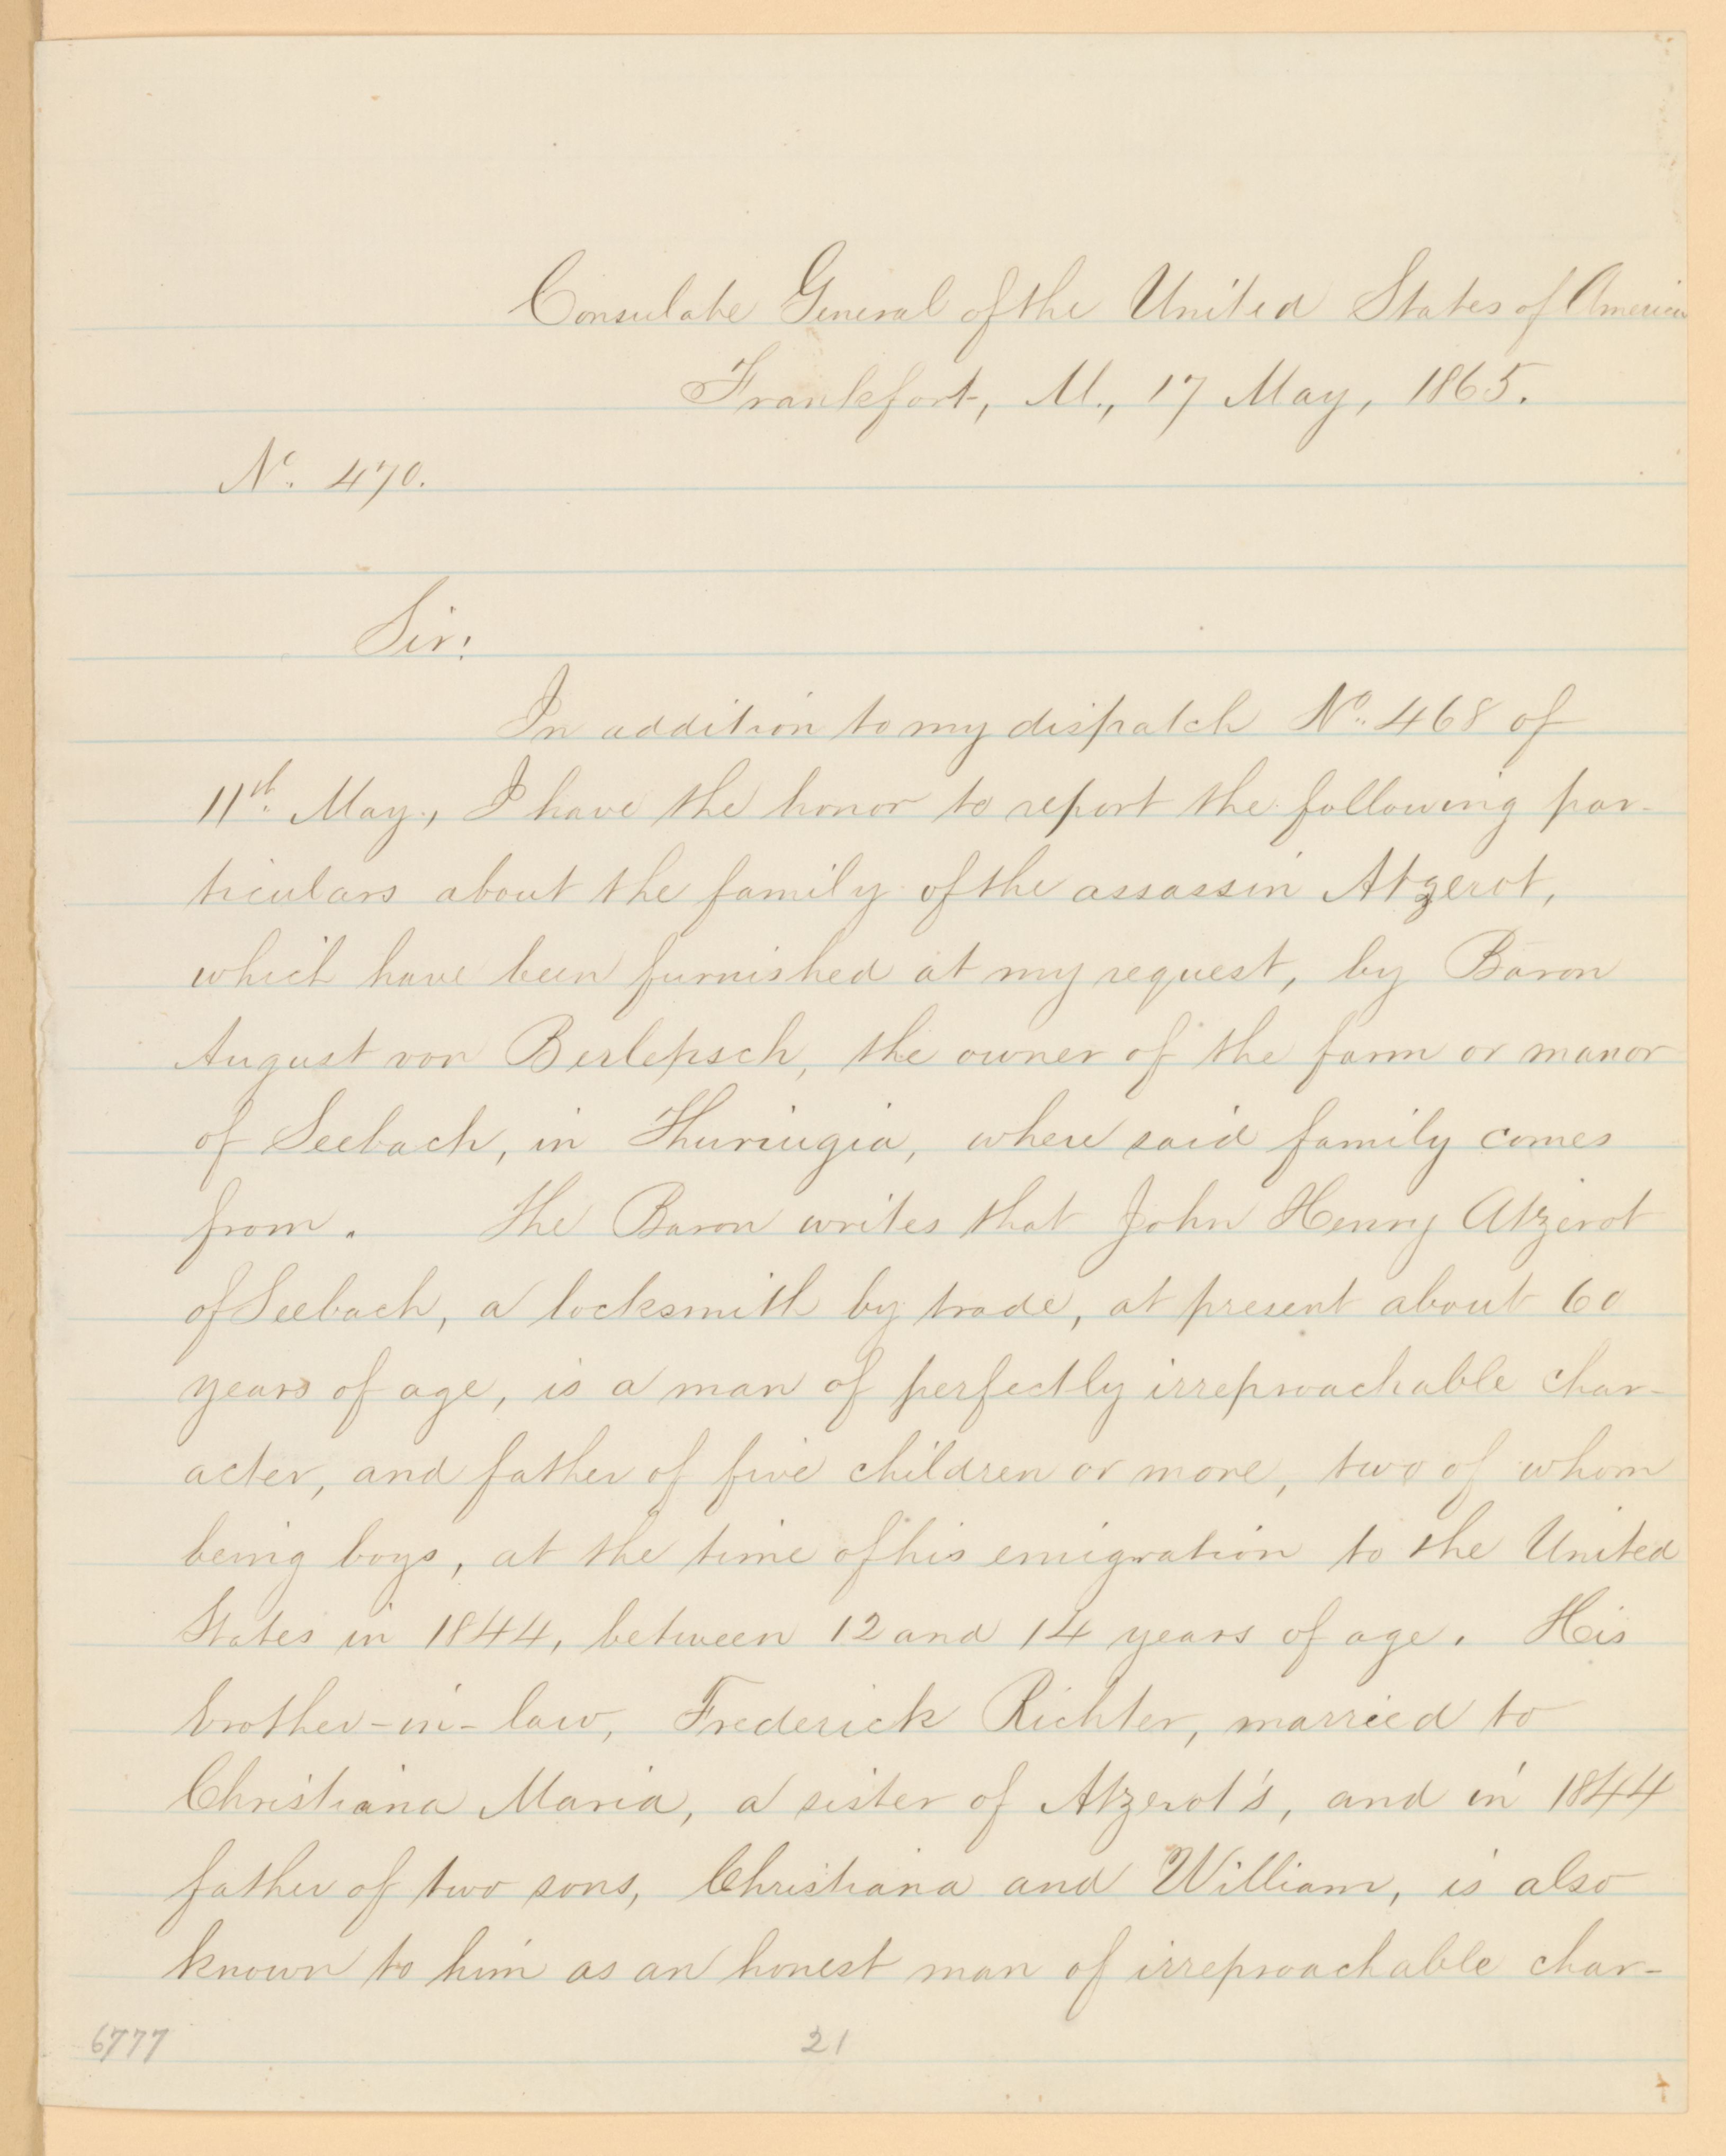 Consulate General of the United States of America
Frankfort, M., 17 May, 1865.
No. 470.
Sir:
In addition to my dispatch No. 468 of
11th. May, I have the honor to report the following par-
ticulars about the family of the assassin Atzerot,
which have been furnished at my request, by Baron
August von Berlepsch, the owner of the farm or manor
of Seebach, in Thuringia, where said family comes
from. The Baron writes that John Henry Atzerot
of Seebach, a locksmith by trade, at present about 60
years of age, is a man of perfectly irreproachable char-
acter, and father of five children or more, two of whom
being boys, at the time of his emigration to the United
States in 1844, between 12 and 14 years of age. His
brother-in-law, Frederick Richter, married to
Christiana Maria, a sister of Atzerot's, and in 1844
father of two sons, Christiana and William, is also
known to him as an honest man of irreproachable char-
6777 21